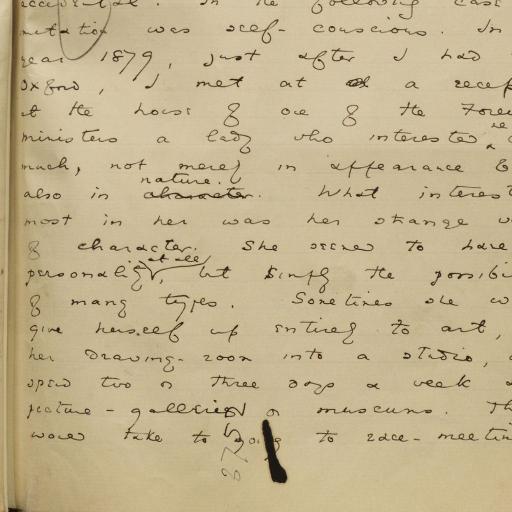 accidental. In the following case
imitation was self-conscious. In
year 1879, just after I had
Oxford, I met at a recep
at the house of one of the Forei
ministers a lady who interested
much, not merely in appearance b
nature.
also in character. What interest
most in her was her strange v
of character. She seemed to have
at all
personality, but simply the possibi
of many types. Sometimes she w
give herself up entirely to art,
her drawing-room into a studio,
spend two or three days a week
picture-galleries or museums. Th
would take to going to race-meetin